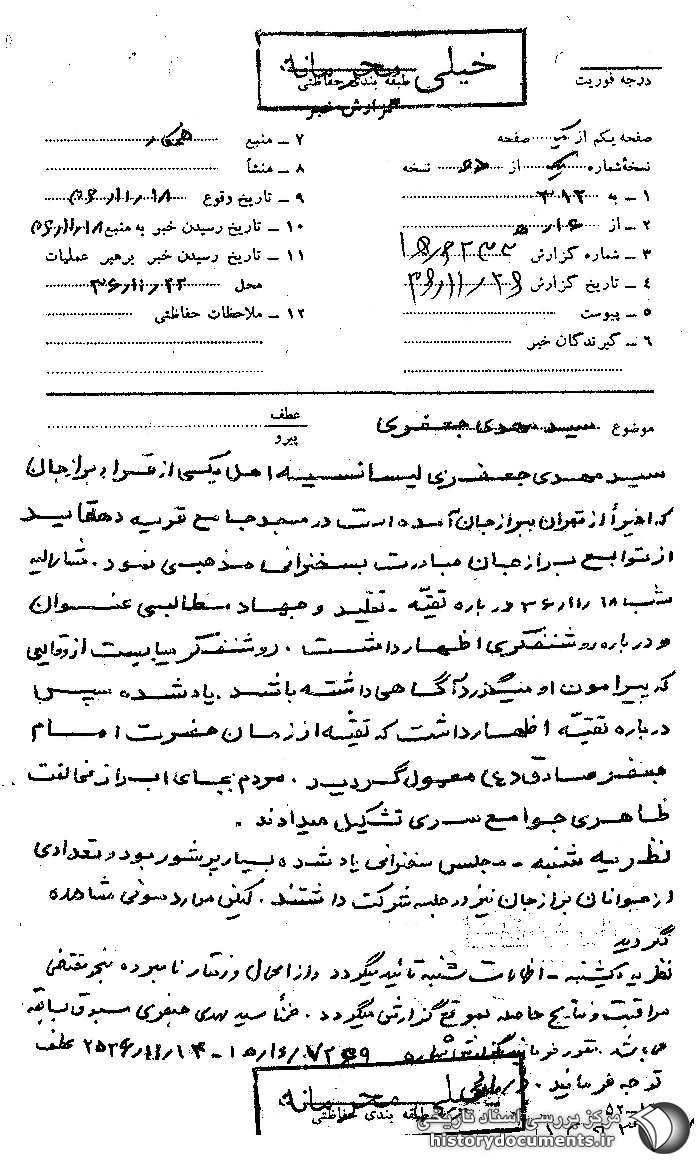 خیلی محرمانه
طبقه بندی حفاظتی
گزارش خبر
درجه فوریت
صفحه یکم از یک صفحه
نسخهٔ شماره یک از نسخه
۱ ــ به ۳۱۲
۲ ــ از ۱۶ ه
۳ ــ شماره گزارش
۴ ــ تاریخ گزارش ۳۶/۱۱/۲۶
۵ ــ پیوست
۶ ــ گیرندگان خبر
۷ ــ منبع همکار
۸ ــ منشأ
۹ ــ تاریخ وقوع ۳۶/۱۱/۱۸
۱۰ ــ تاریخ رسیدن خبر به منبع ۳۶/۱۱/۱۸
۱۱ ــ تاریخ رسیدن خبر برهبر عملیات
محل ۳۶/۱۱/۲۲
۱۲ ــ ملاحظات حفاظتی
موضوع سید مهدی جعفری
عطف
پیرو
سید مهدی جعفری لیسانسیه اهل یکی از قراء برازجان
که اخیراً از تهران ببرازجان آمده است در مسجد جامع قریه دهقاید
از توابع برازجان مبادرت بسخنرانی مذهبی نمود. مشارالیه
شب ۱۸/۱۱/۳۶ درباره تقیّه ـ تقلید و جهاد مطالبی عنوان
و درباره روشنفکری اظهار داشت. روشنفکر میبایست از وقایعی
که پیرامون او میگذرد آگاهی داشته باشد. یاد شده سپس
درباره تقیّه اظهار داشت که تقیّه از زمان حضرت امام
جعفر صادق (ع) معمول گردید. مردم بجای ابراز مخالفت
ظاهری جوامع سری تشکیل میدادند.
نظریه شنبه ـ مجلس سخنرانی یاد شده بسیار پرشور بود و تعدادی
از جوانان برازجان نیز در جلسه شرکت داشتند. لیکن موارد سوئی مشاهده
نگردید
نظریه یکشنبه ـ اظهارات شنبه تائید میگردد و از اعمال و رفتار نامبرده بنحو مقتضی
مراقبت و نتایج حاصله بموقع گزارش میگردد. ضمناً سید مهدی جعفری مسبوق بسابقه
می باشد. مقرر فرمایند بگزارش شماره ۱۴ـ۲۵۳۶/۱۱ عطف
توجه فرمایند.
خیلی محرمانه
طبقه بندی حفاظتی
مرکز بررسی اسناد تاریخی
historydocuments.ir